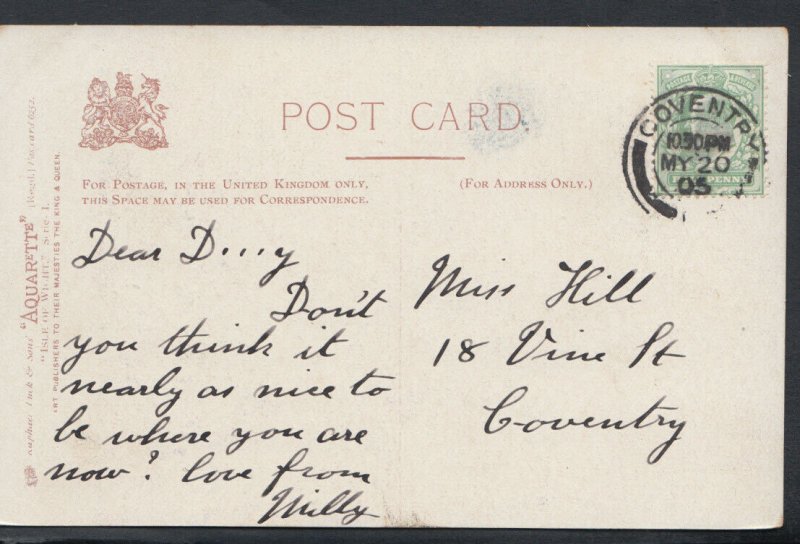 POST CARD.
FOR POSTAGE, IN THE UNITED KINGDOM ONLY,
THIS SPACE MAY BE USED FOR CORRESPONDENCE.
(FOR ADDRESS ONLY.)
COVENTRY
10.30PM
MY 20
05
Dear D...y
Don't
you think it
nearly as nice to
be where you are
now? love from
Milly
Miss Hill
18 Vine St
Coventry
Raphael Tuck & Sons' "AQUARETTE"
"ISLE OF WIGHT." Serie I.
ART PUBLISHERS TO THEIR MAJESTIES THE KING & QUEEN.